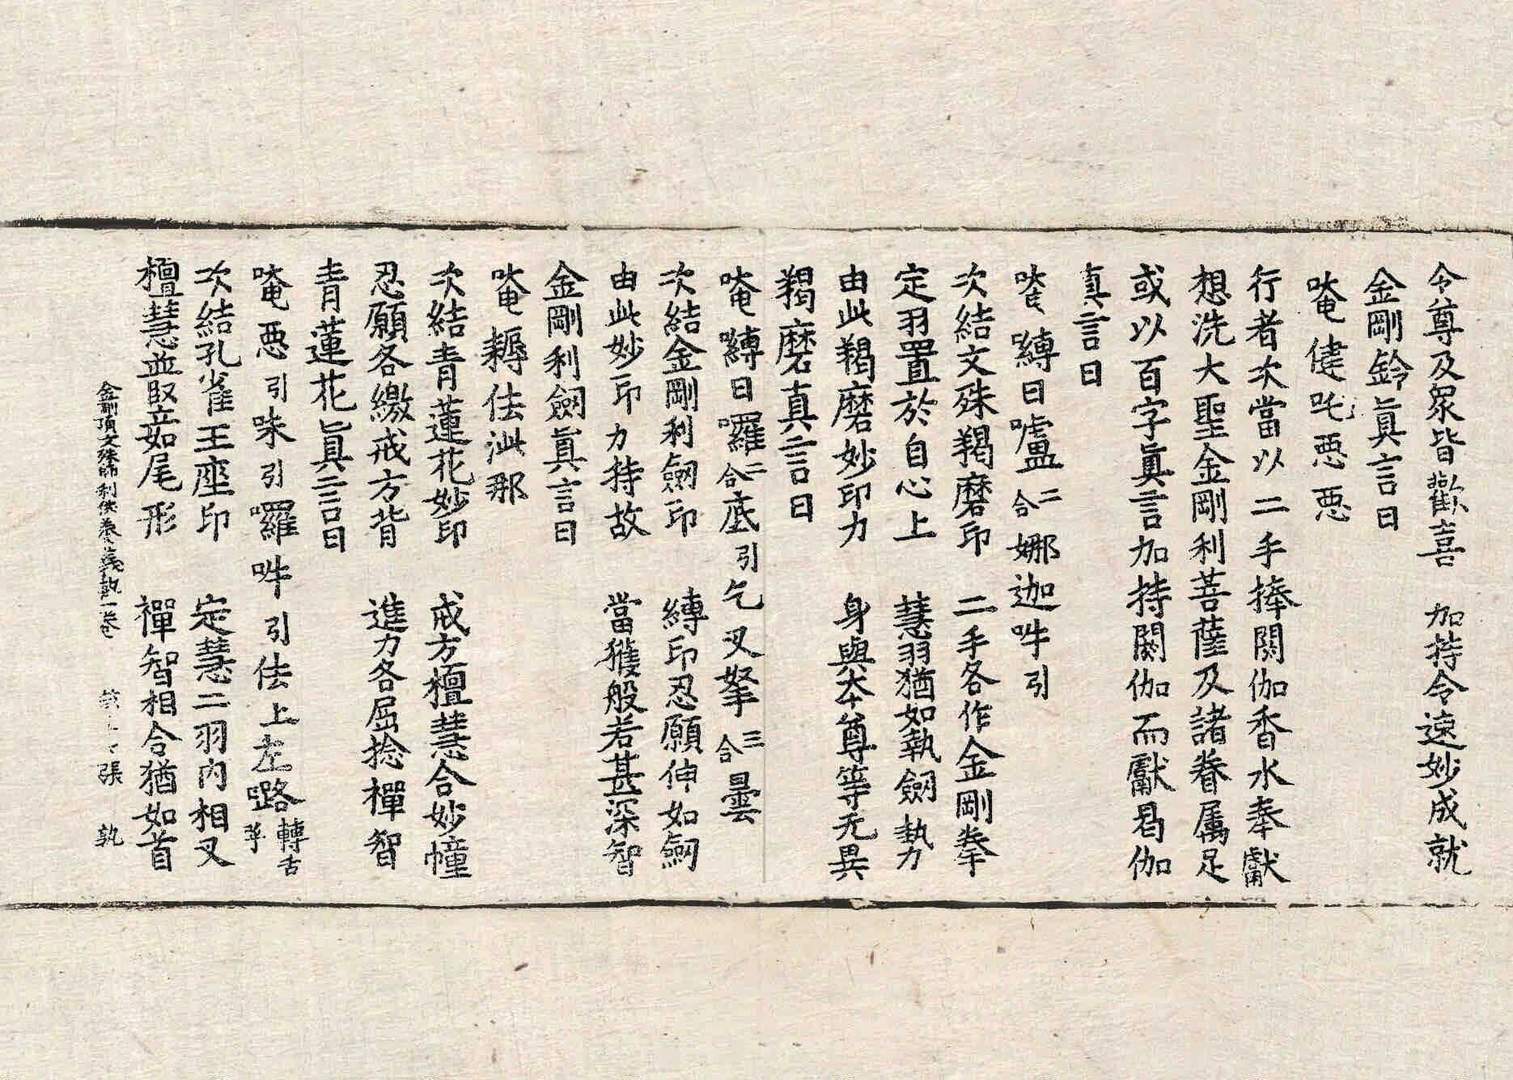 令尊及眾皆歡喜　加持令速妙成就
金剛鈴眞言曰
唵健吒惡惡
行者次當以二手捧閼伽香水奉獻
想洗大聖金剛利菩薩及諸眷属足
或以百字眞言加持閼伽而獻曷伽
真言曰
唵嚩日嚧二合娜迦吽引
次結文殊羯磨印　二手各作金剛拳
定羽置於自心上　慧羽猶如執劒勢
由此羯磨妙印力　身與夲尊等无異
羯磨真言曰
唵嚩日囉二合底引乞叉拏三合曇
次結金剛利劒印　縛印忍願伸如劒
由此妙印力持故　當獲般若甚深智
金剛利劒眞言曰
唵耨佉泚那
次結青蓮花妙印　戒方檀慧合妙幢
忍願各繳戒方背　進力各屈捻禪智
青蓮花眞言曰
唵惡引味引囉吽引佉上左路轉舌
次結孔雀王座印　定慧二羽內相叉
檀慧並竪如尾形　禪智相合猶如首
金剛頂文殊師利供養儀軌一卷　張　執